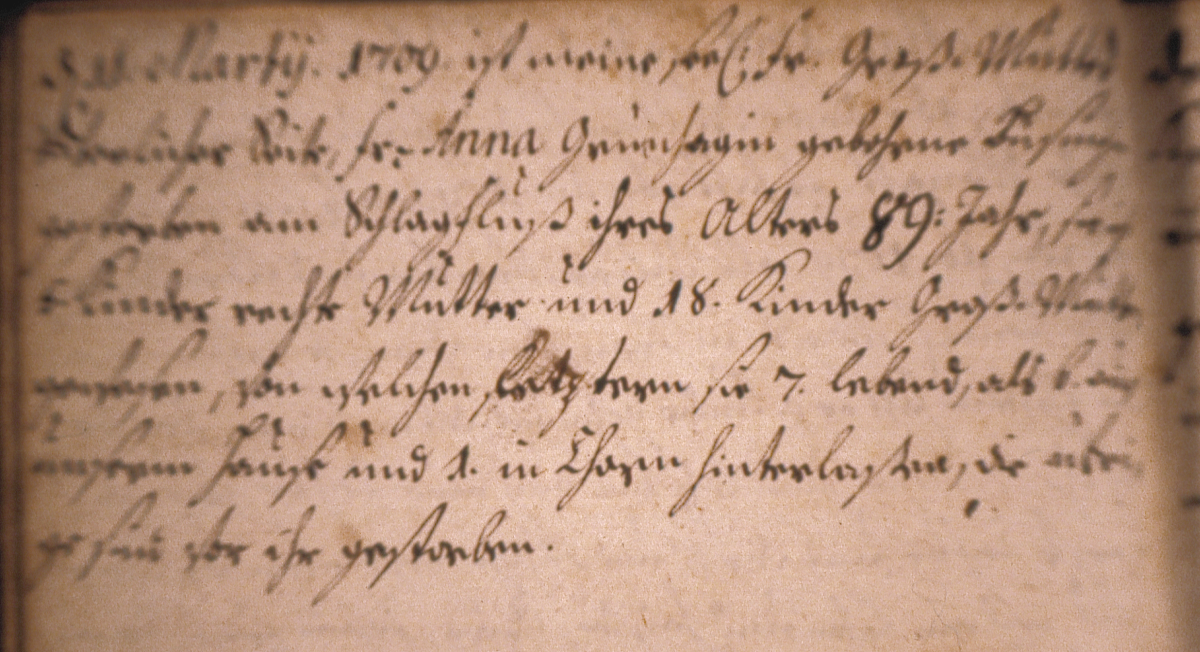 Martij. 1709. ist meine seel: Fr. Groß-Mutter
Seite, Fr. Anna gebohrne
gestorben am Schlagfluß ihres Alters 89: Jahr,
Kinder rechte Mutter und 18. Kinder Groß-Mutter
gewesen, von welchen letztern sie 7. lebend, als 6. aus
unserm Hause und 1. in Thorn hinterlaßen, die übri-
ge sind vor ihr gestorben.